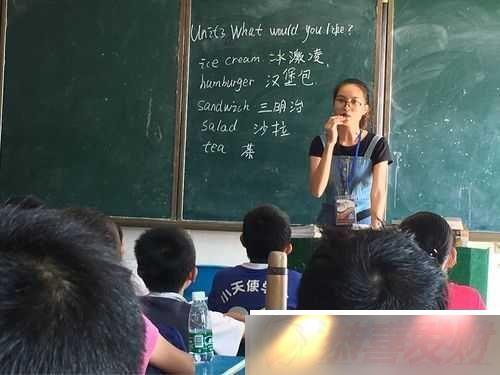 Unit3 What would you like?
ice cream 冰激凌,
hamburger 汉堡包
sandwich 三明治
salad 沙拉
tea 茶
小天使